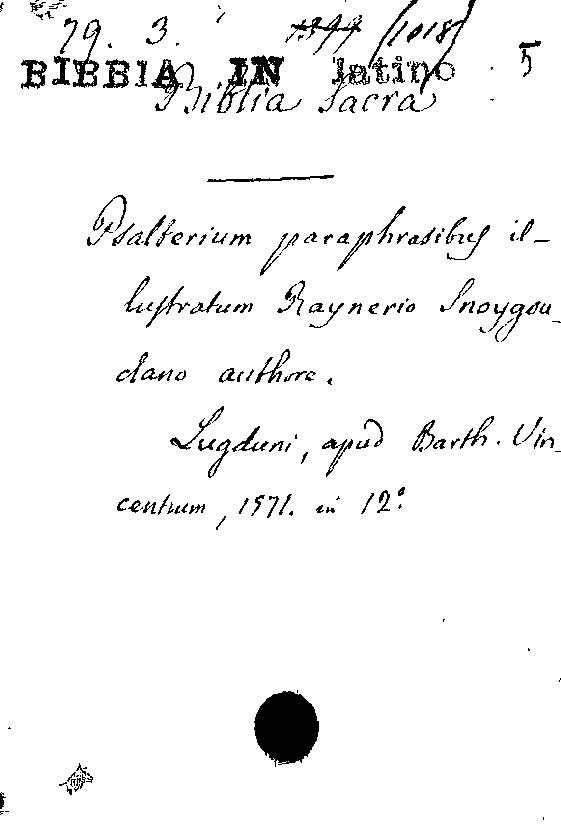 79. 3. (1018)
BIBBIA IN latino 5
Biblia Sacra
Psalterium paraphrasibus il-
lustratum Raynerio Snoygou-
dano authore.
Lugduni, apud Barth. Vin-
centium, 1571. in 12º